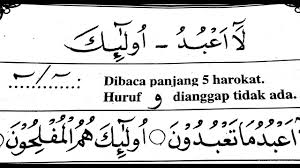 لَآ اَعْبُدُ - اُولٰٓئِكَ
Dibaca panjang 5 harokat.
Huruf و dianggap tidak ada.
لَآ اَعْبُدُ مَا تَعْبُدُوْنَ ○ اُولٰٓئِكَ هُمُ الْمُفْلِحُوْنَ ○